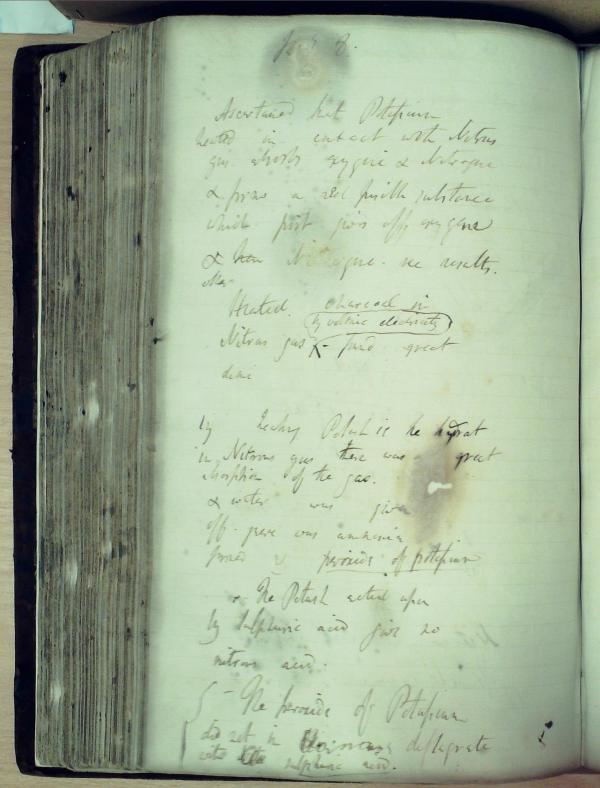 8.
Ascertained that Potassium
heated in contact with Nitrous
gas absorbs oxygene & Nitrogene
& forms a red fusible substance
which first gives off oxygene
& then Nitrogene. see results.
Heated. charcoal in
by voltaic electricity
Nitrous gas found great
dimi
by heating Potash is the hydrat
in Nitrous gas there was great
absorption of the gas.
& water was given
off. there was ammonia
formed & peroxide of potassium
The Potash acted upon
by sulphuric acid gave no
nitrous acid.
The peroxide of Potassium
did not in deflagrate
with sulphuric acid.